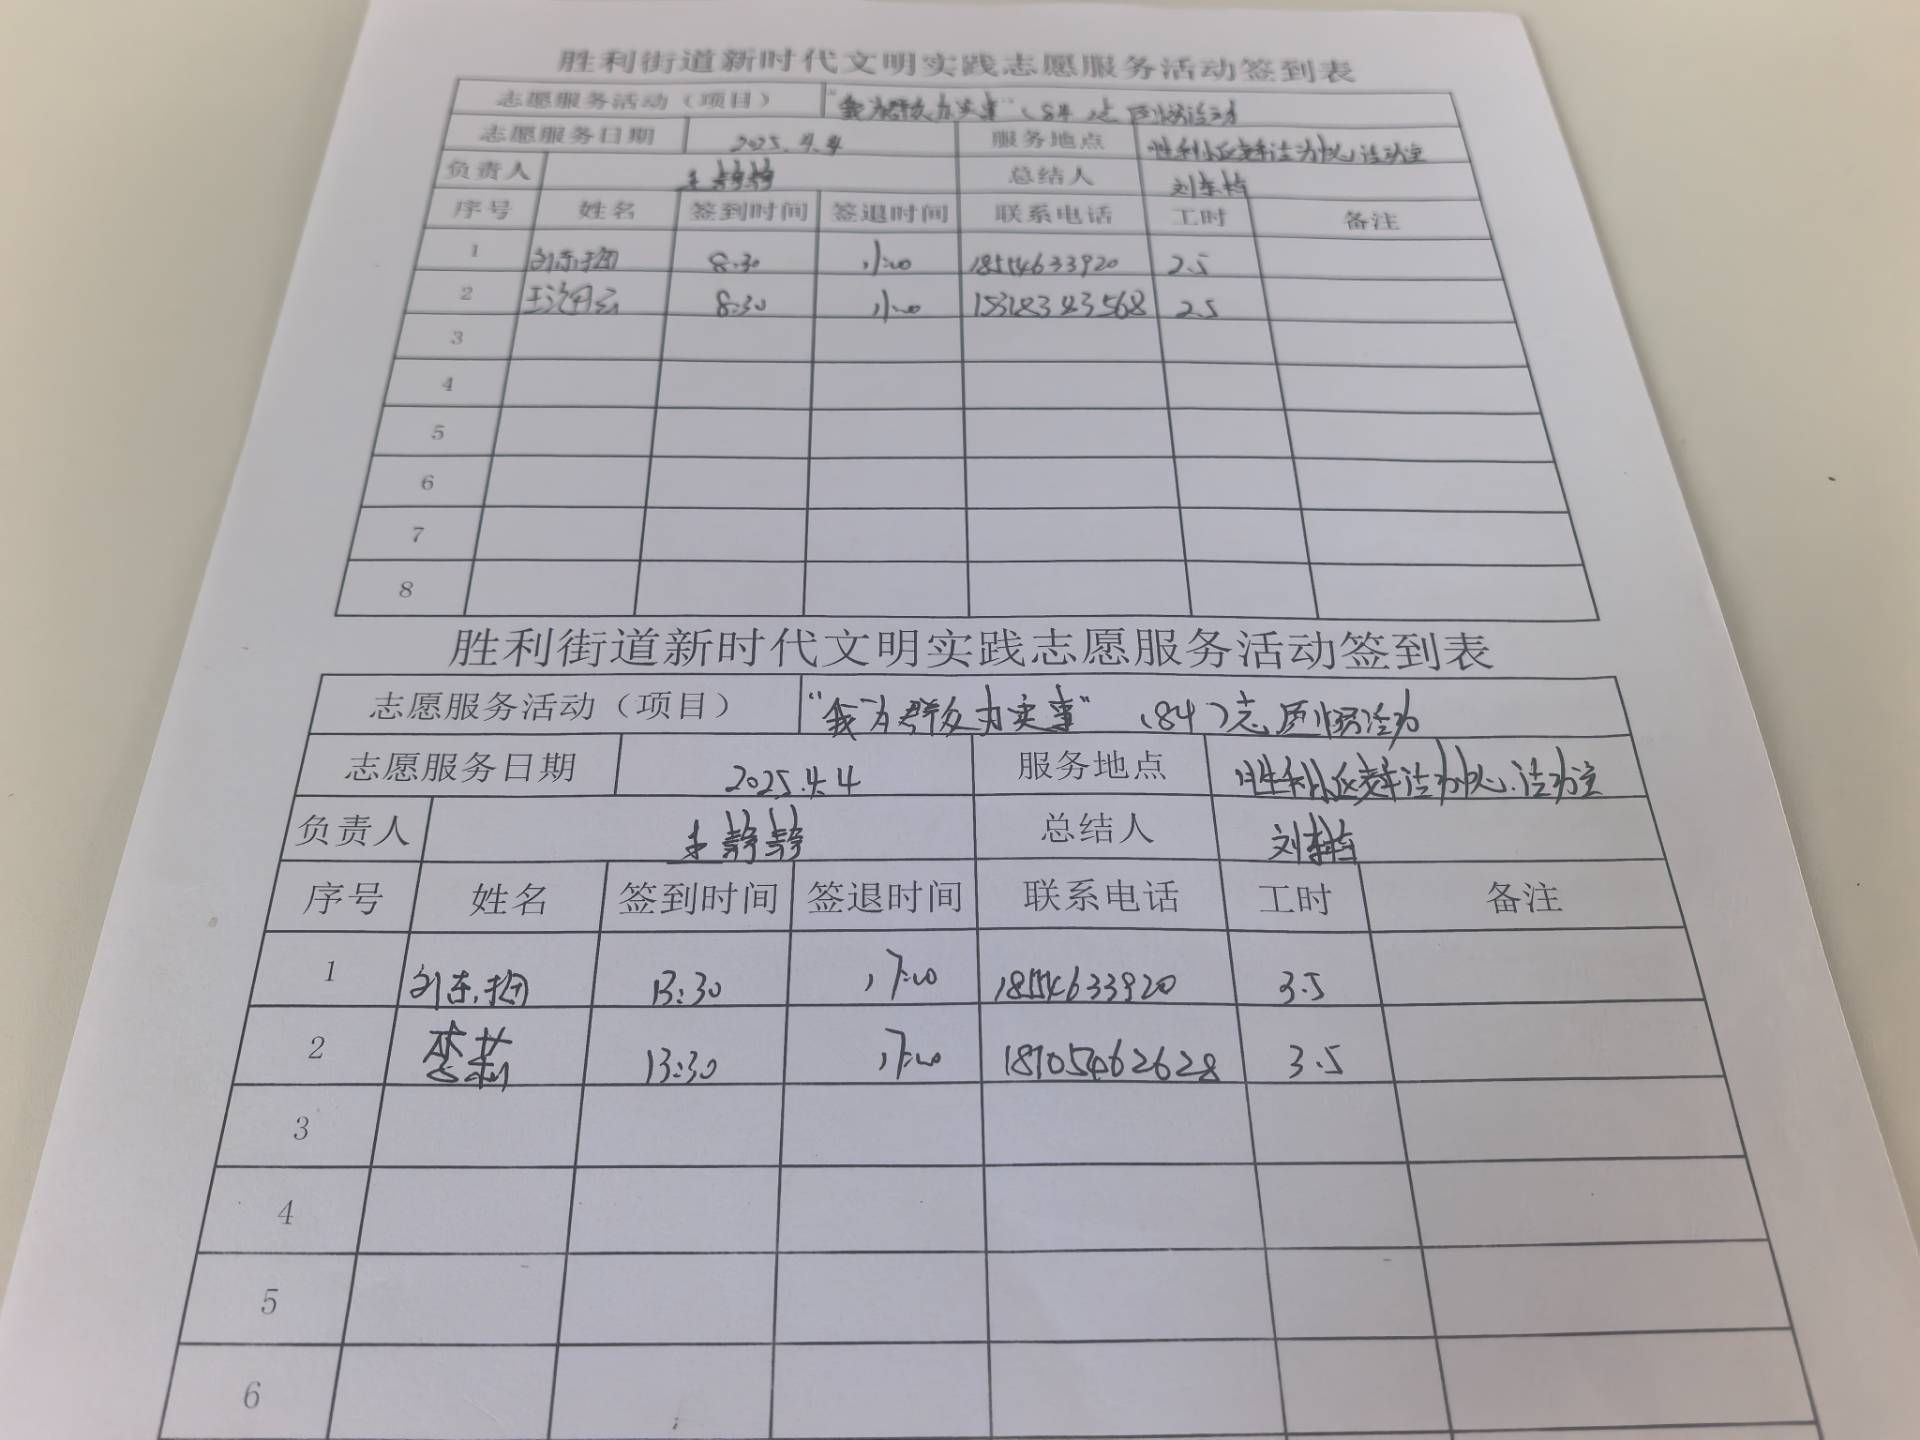 胜利街道新时代文明实践志愿服务活动签到表
志愿服务活动（项目） “我为群众办实事”（84）志愿服务活动
志愿服务日期 2025.4.4 服务地点 胜利小区老年活动中心活动室
负责人 王静静 总结人 刘东梅
序号 姓名 签到时间 签退时间 联系电话 工时 备注
1 刘东梅 8:30 11:00 18554633920 2.5
2 8:30 11:00 2.5
3
4
5
6
7
8
胜利街道新时代文明实践志愿服务活动签到表
志愿服务活动（项目） “我为群众办实事”（84）志愿服务活动
志愿服务日期 2025.4.4 服务地点 胜利小区老年活动中心活动室
负责人 王静静 总结人 刘东梅
序号 姓名 签到时间 签退时间 联系电话 工时 备注
1 刘东梅 13:30 17:00 18554633920 3.5
2 13:30 17:00 18705462628 3.5
3
4
5
6